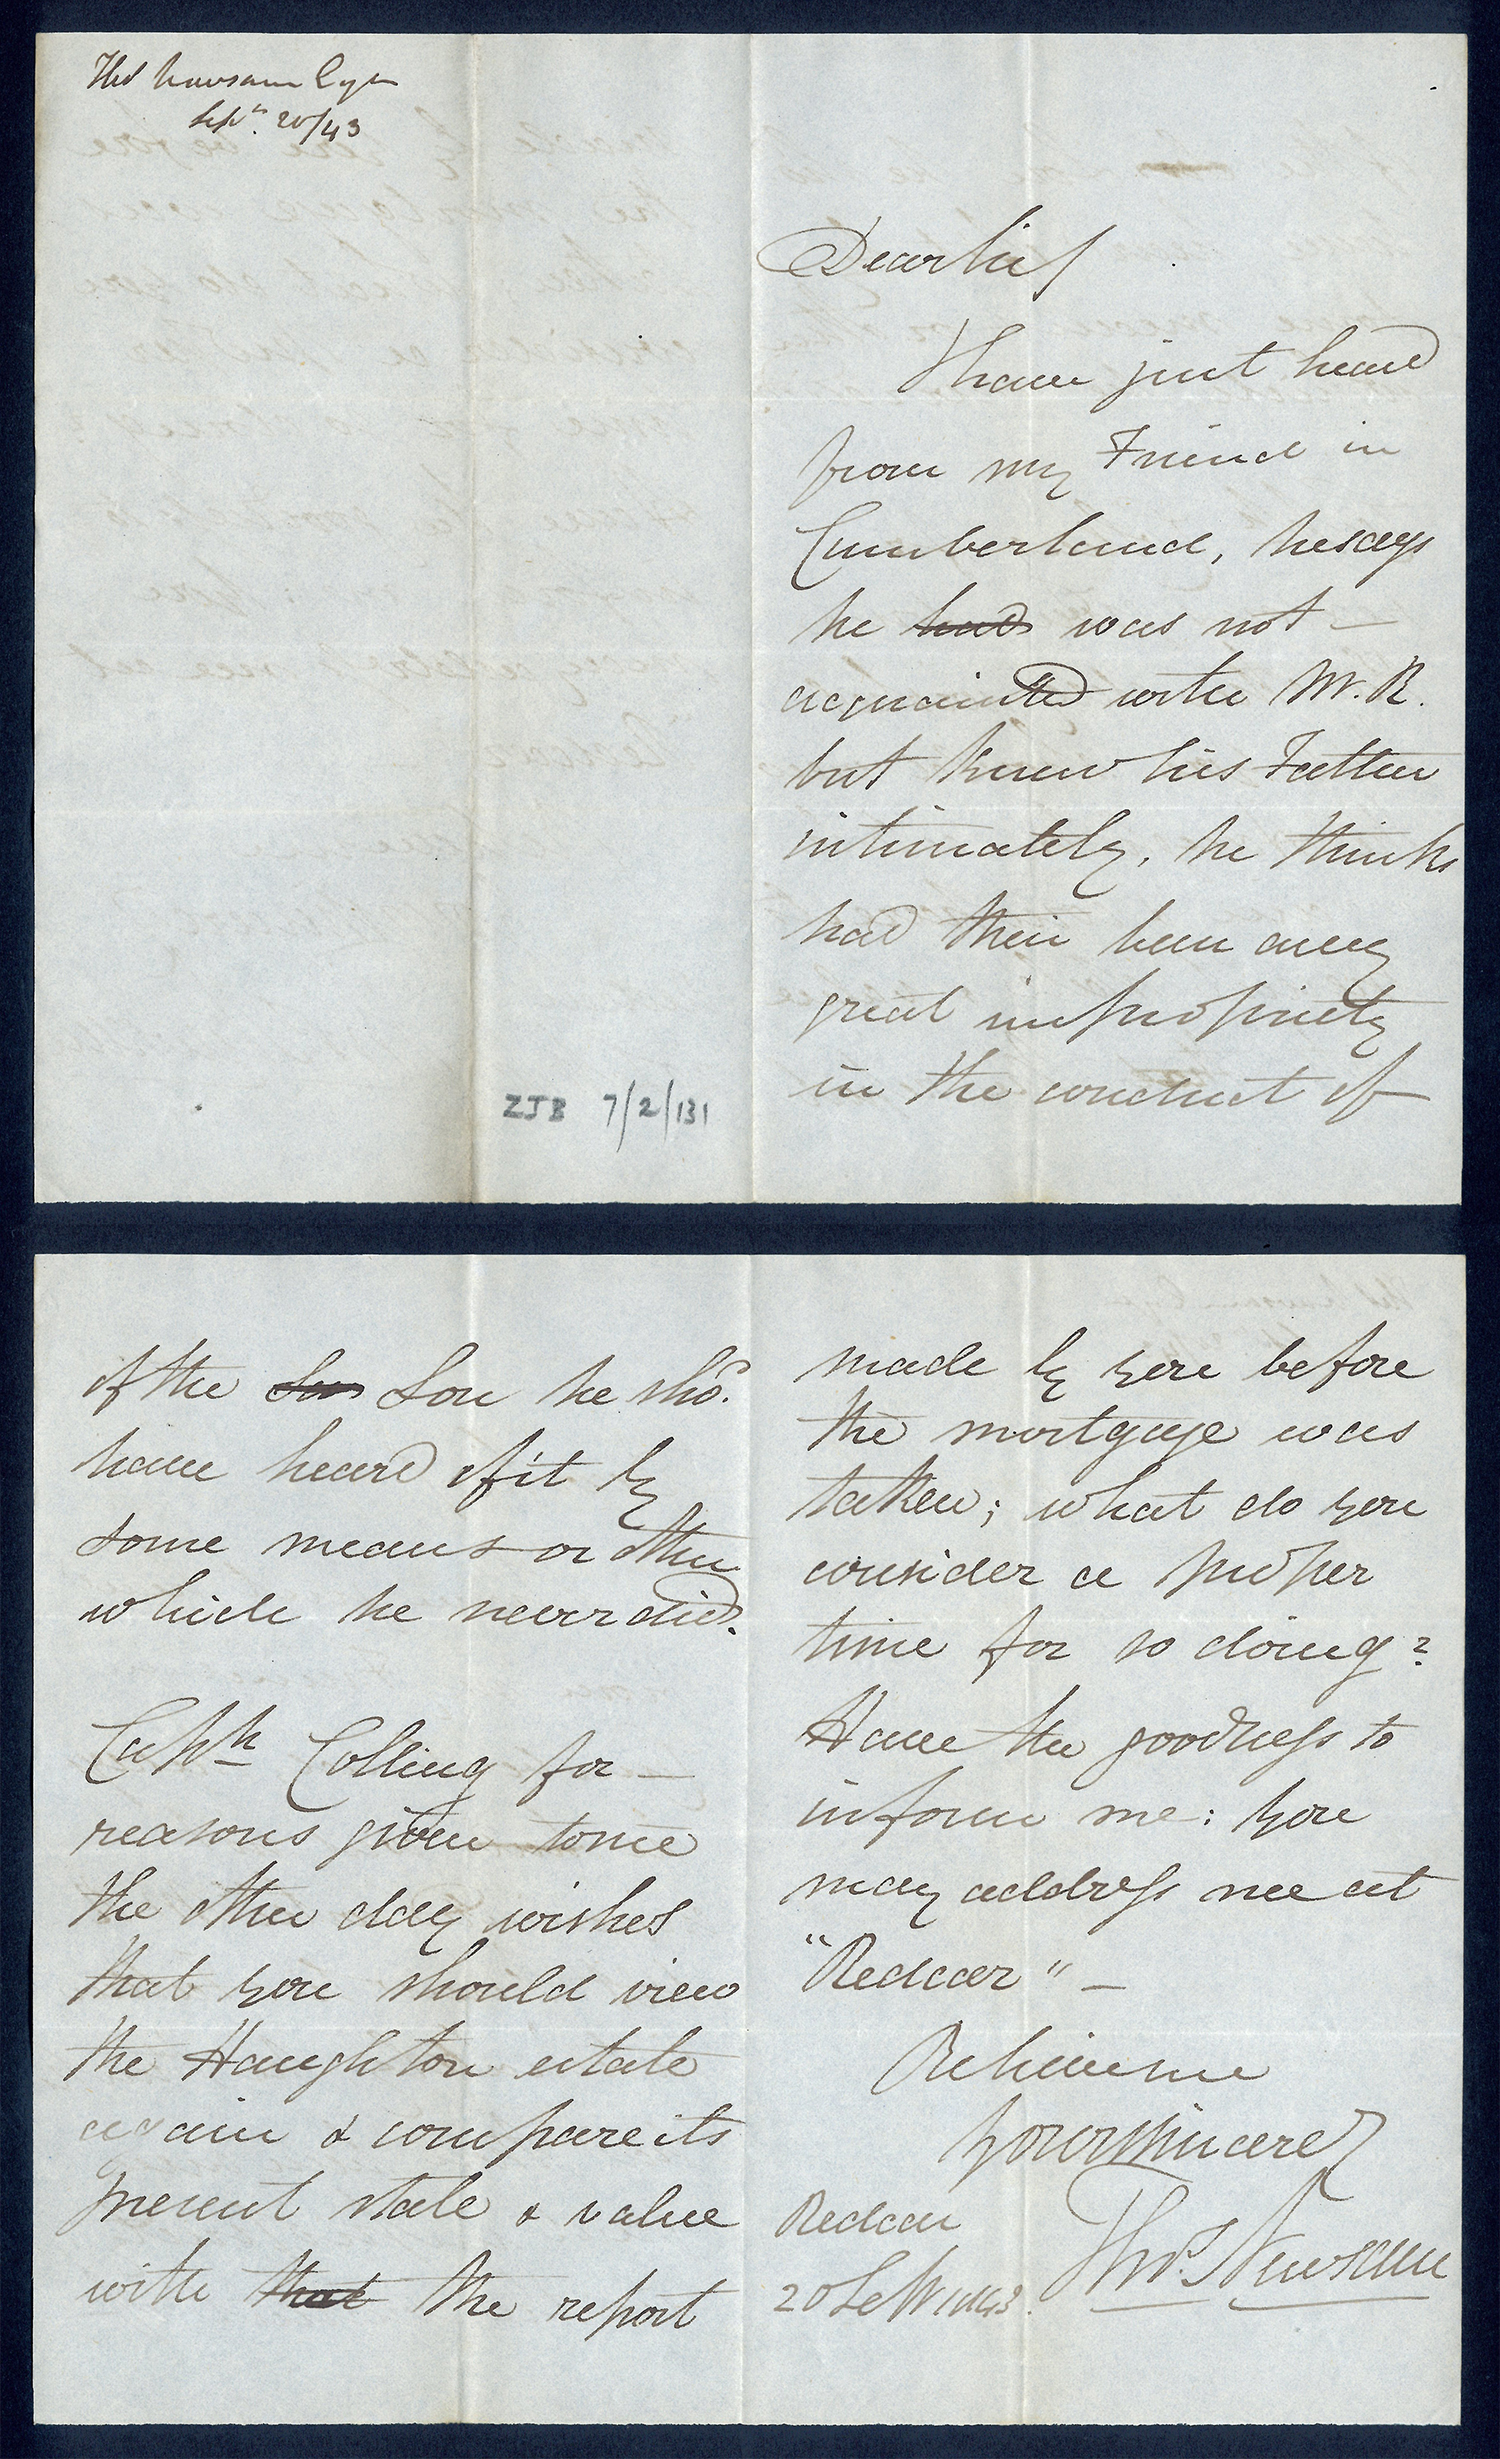 Thos Newsam Esqr
Sepr. 20/43
ZJB 7/2/131
Dear Sir/
I have just heard
from my Friend in
Cumberland, he says
he had was not —
acquainted with W. R.
but knew his Father
intimately, he thinks
had their been any
great impropriety
in the conduct of
of the Son he shod.
have heard of it by
some means or other
which he never did.
Captn Colling for —
reasons given to me
the other day wishes
that you should view
the Haughton estate
again & compare its
present state & value
with that the report
made by you before
the mortgage was
taken; what do you
consider a proper
time for so doing?
Have the goodness to
inform me: you
may address me at
"Redcar" —
Believe me
yours sincerely
Redcar Thos. Newsam
20 Sept 1843.